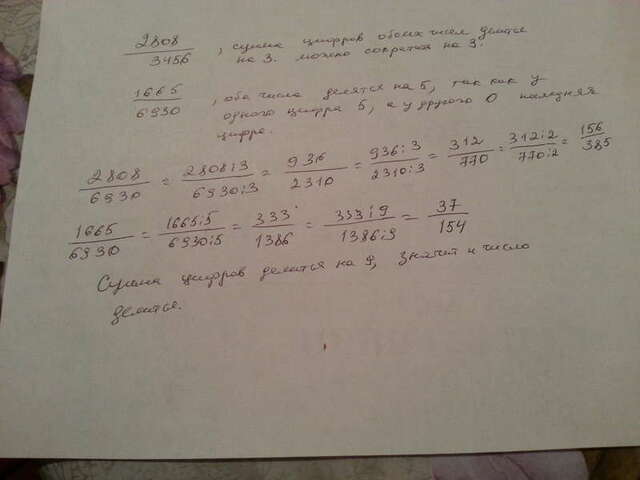 2808/3456 , сумма цифров обоих чисел делится
на 3. можно сократить на 3.
1665/6930 , оба числа делятся на 5, так как у
одного цифра 5, а у другого 0
цифра.
2808/6930 = 2808:3/6930:3 = 936/2310 = 936:3/2310:3 = 312/770 = 312:2/770:2 = 156/385
1665/6930 = 1665:5/6930:5 = 333/1386 = 333:9/1386:9 = 37/154
Сумма цифров делится на 9, значит и число
делится.